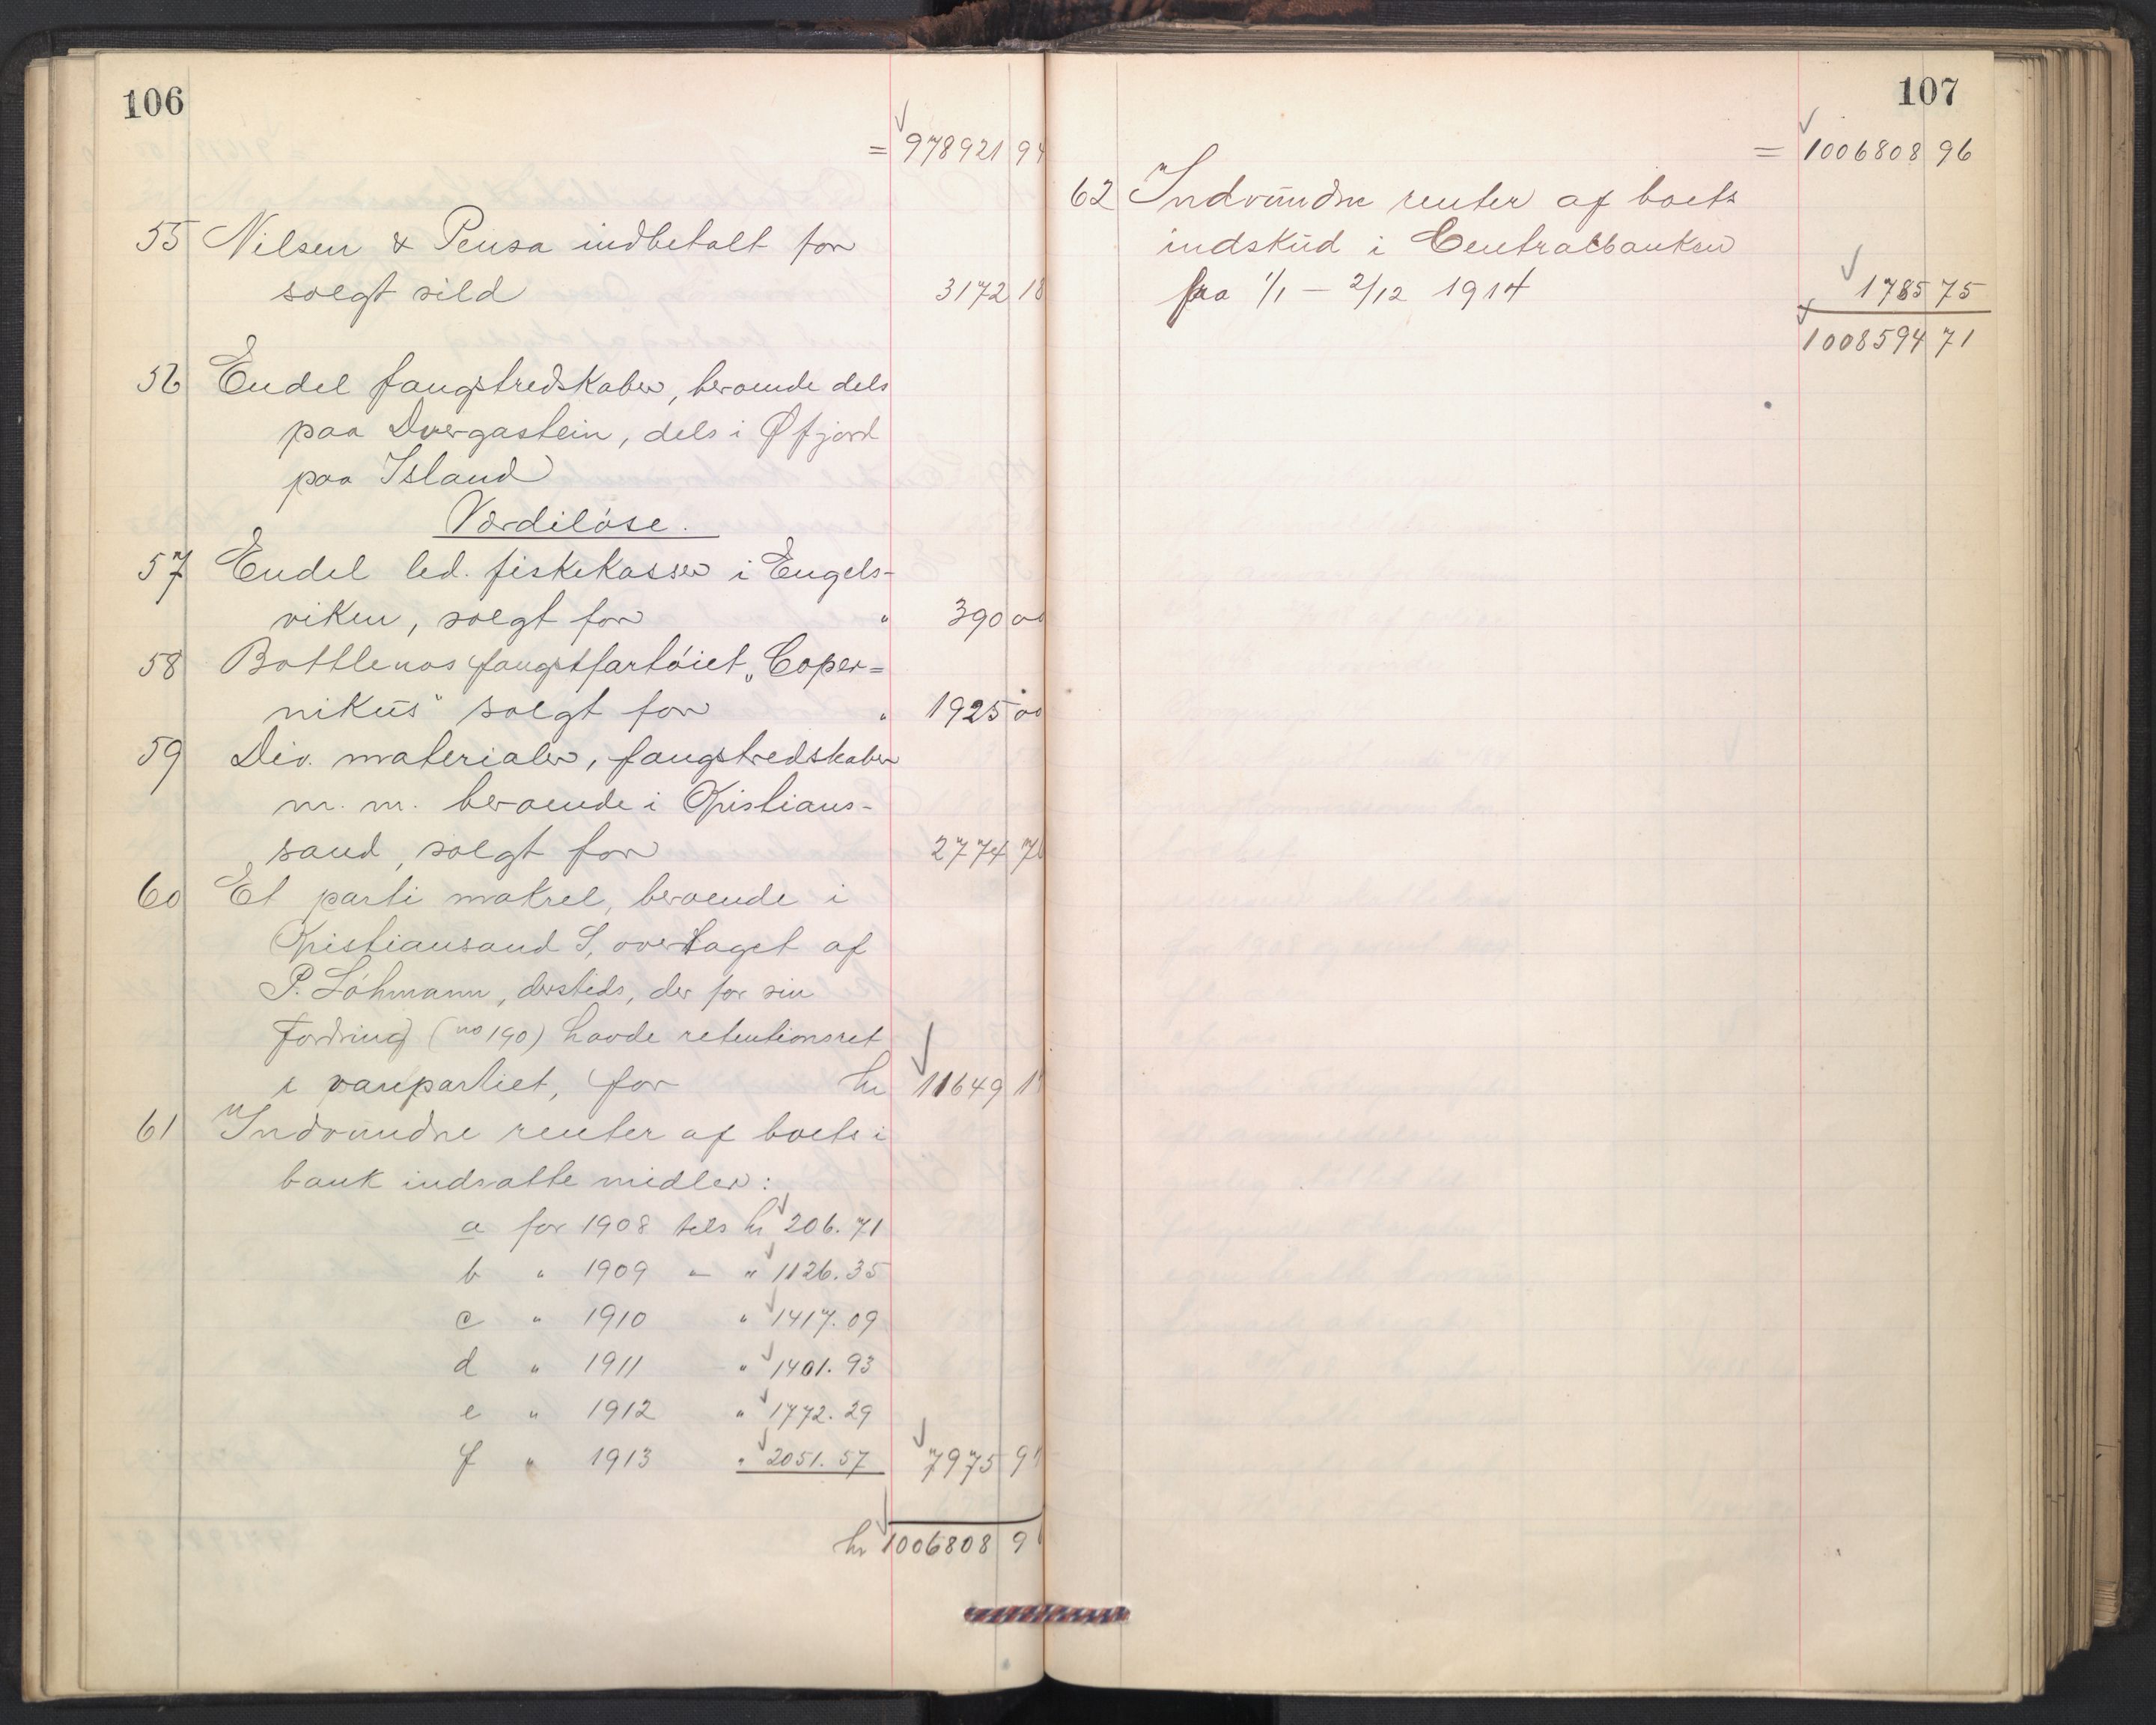 106
= 978921 94
55 Nilsen & Pensa indbetalt for
solgt sild 3172 18
56 Endel fangstredskaber, beroende dels
paa Dvergastein, dels i Øfjord
paa Island
Værdiløse.
57 Endel led. fiskekasser i Engels-
viken, solgt for " 390 00
58 Bottlenos fangstfartøiet „Coper=
nikus" solgt for " 1925 00
59 Div. materialer, fangstredskaber
m. m. beroende i Kristians-
sand, solgt for 2774
60 Et parti makrel, beroende i
Kristiansand S, overtaget af
P. Löhmann, dersteds, der for sin
Fordring (no 190) havde retentionsret
i varepartiet, for kr 11649
61 Indvundne renter af boets i
bank indsatte midler:
a for 1908 tils kr 206.71
b " 1909 - " 1126.35
c " 1910 " 1417.09
d " 1911 " 1401.93
e " 1912 " 1772.29
f " 1913 " 2051.57 7975 9
kr 1006808 9
107
= 1006808 96
62 Indvundne renter af boets
indskud i Centralbanken
fra 1/1 – 2/12 1914 1785 75
1008594 71